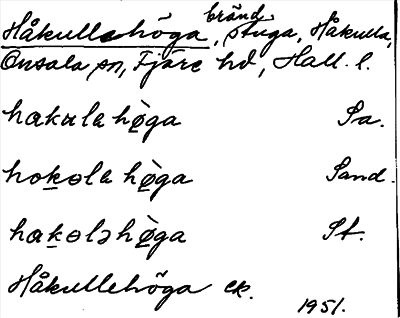 Håkullehöga, bränd stuga, Håkulla,
Onsala sn, Fjäre hd, Hall. l.
hakulahø̀ga Sa.
hokɵlahø̀ga Sand.
hakɵləhø̀ga St.
Håkullehöga ek.
1951.